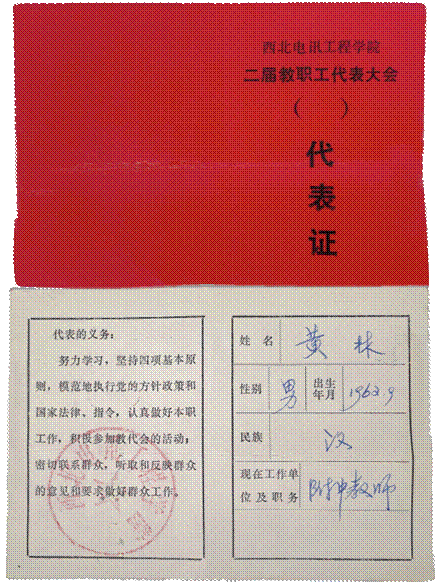 西北电讯工程学院
二届教职工代表大会
( )
代
表
证
代表的义务:
努力学习，坚持四项基本原
则，模范地执行党的方针政策和
国家法律、指令，认真做好本职
工作，积极参加教代会的活动；
密切联系群众，听取和反映群众
的意见和要求做好群众工作。
姓 名 黄 林
性别 男 出生年月 1962.9
民族 汉
现在工作单位及职务 附中教师